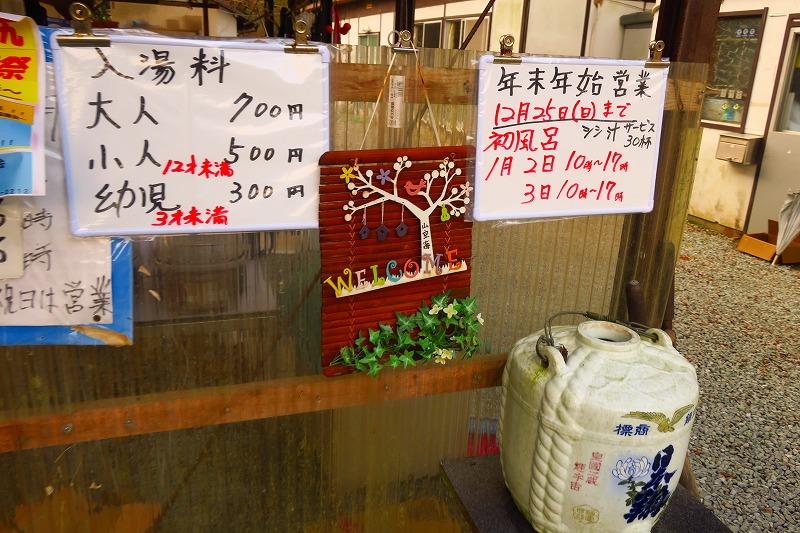 入湯料
大人 700円
小人 12才未満 500円
幼児 3才未満 300円
年末年始営業
12月25日(日)まで
初風呂 シシ汁サービス 30杯
1月2日 10時~17時
3日 10時~17時
山空海
WELCOME
祭
時
時
祝日は営業
標商
日本